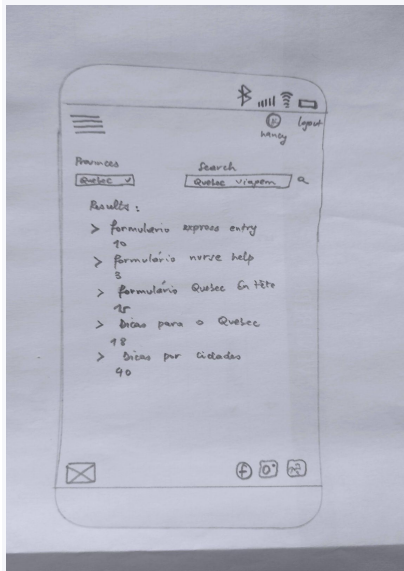 logout
Nancy
Provinces
Search
Quebec
Quebec viagem
Results:
> formulario express entry
10
> formulário nurse help
3
> formulário Quebec En tête
15
> Dicas para o Quebec
18
> Dicas por cidades
90